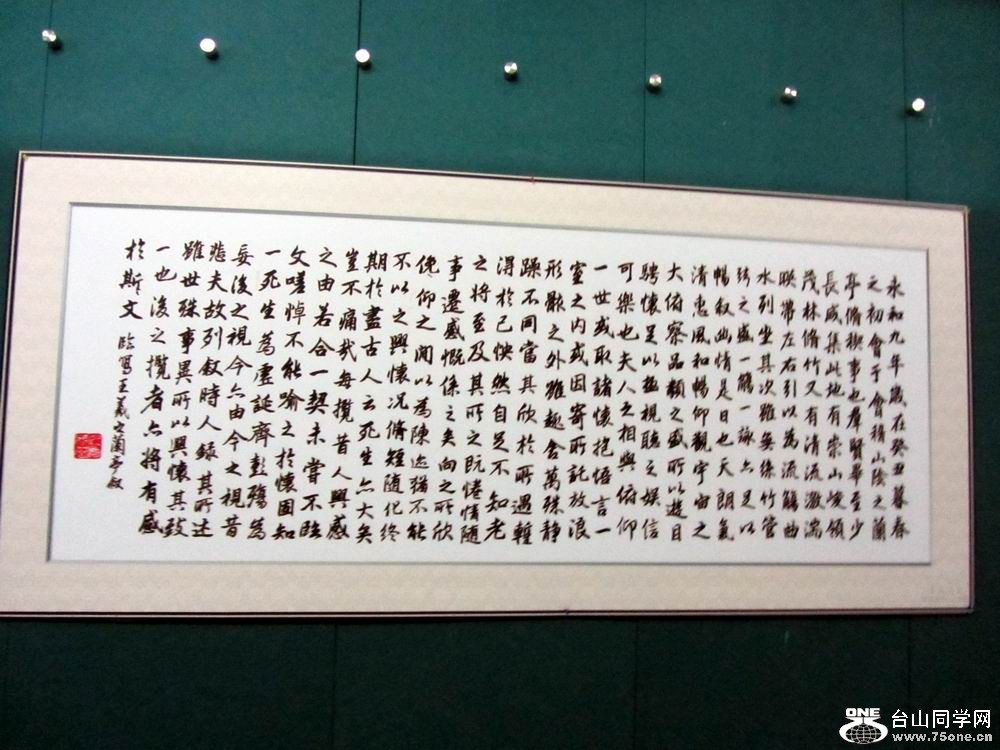 永和九年歲在癸丑暮春
之初會于會稽山陰之蘭
亭脩禊事也羣賢畢至少
長咸集此地有崇山峻領
茂林脩竹又有清流激湍
暎帶左右引以為流觴曲
水列坐其次雖無絲竹管
弦之盛一觴一詠亦足以
暢叙幽情是日也天朗氣
清惠風和暢仰觀宇宙之
大俯察品類之盛所以遊目
騁懷足以極視聽之娛信
可樂也夫人之相與俯仰
一世或取諸懷抱悟言一
室之內或因寄所託放浪
形骸之外雖趣舍萬殊静
躁不同當其欣於所遇蹔
得於己怏然自足不知老
之將至及其所之既惓情隨
事遷感慨係之矣向之所欣
俛仰之間以為陳迹猶不能
不以之興懷况脩短随化終
期於盡古人云死生亦大矣
豈不痛哉每攬昔人興感
之由若合一契未嘗不臨
文嗟悼不能喻之於懷固知
一死生為虛誕齊彭殤為
妄後之視今亦由今之視昔
悲夫故列叙時人録其所述
雖世殊事異所以興懷其致
一也後之攬者亦將有感
於斯文 臨寫王羲之蘭亭叙
ONE 台山同学网
www.75one.cn